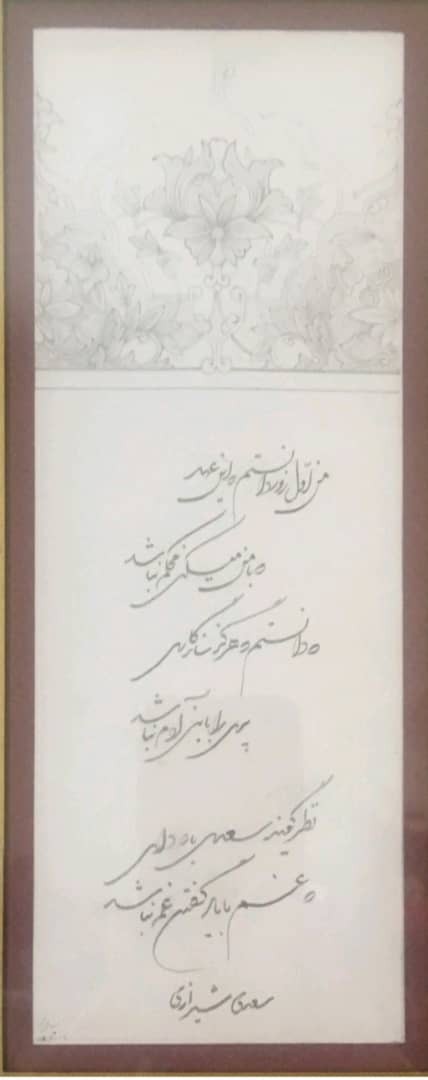 من اول روز دانستم که این عهد
که با من میکنی محکم نباشد
که دانستم که هرگز سازگاری
پری را با بنی آدم نباشد
نظر گویند سعدی با که داری
که غم با یار گفتن غم نباشد
سعدی شیرازی